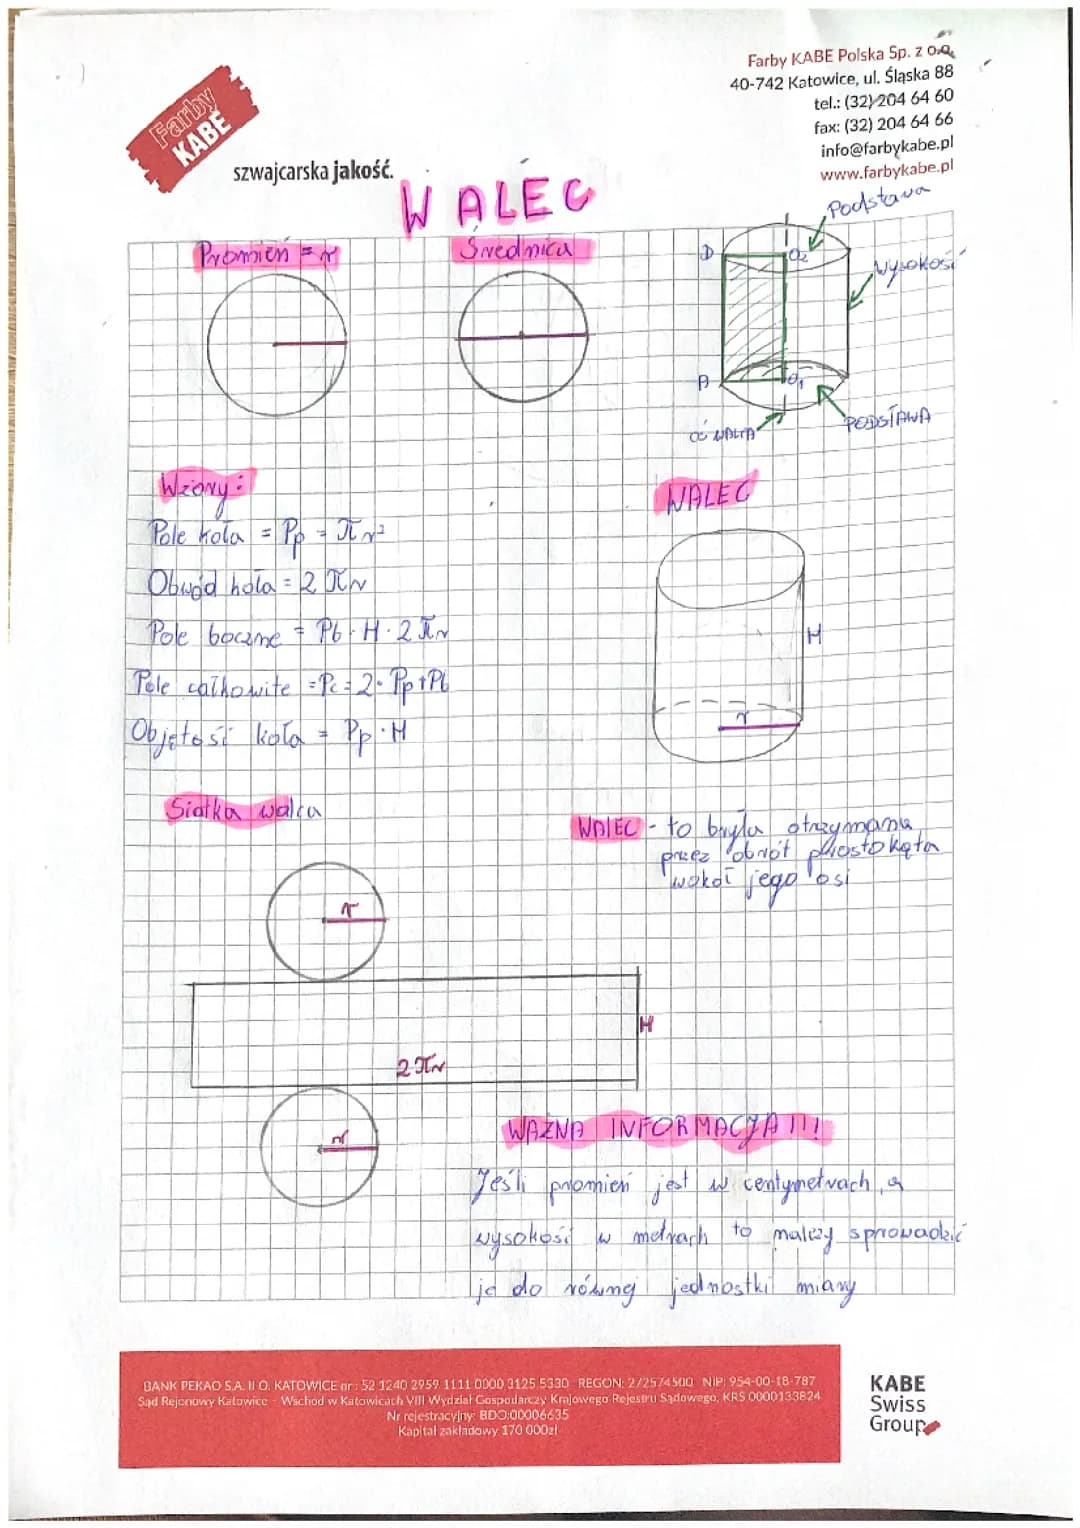 Farby KABE Polska Sp. z o.o.
40-742 Katowice, ul. Śląska 88
tel.: (32) 204 64 60
fax: (32) 204 64 66
info@farbykabe.pl
www.farbykabe.pl
Farby
KABE
szwajcarska jakość.
WALEC
Promień = r
Średnica
Podstawa
D
O₂
wysokość
A
O₁
OŚ WALCA
PODSTAWA
Wzory:
Pole koła = Pp = πr²
Obwód koła = 2πr
Pole boczne = Pb = H · 2πr
Pole całkowite = Pc = 2 · Pp + Pb
Objętość koła = Pp · H
WALEC
H
r
Siatka walca
r
H
2πr
r
WALEC - to bryła otrzymana
przez obrót prostokąta
wokół jego osi
WAŻNA INFORMACJA!!!
Jeśli promień jest w centymetrach, a
wysokość w metrach to należy sprowadzić
je do równej jednostki miary
BANK PEKAO S.A. II O. KATOWICE nr: 52 1240 2959 1111 0000 3125 5330 REGON: 272574500 NIP: 954-00-18-787
Sąd Rejonowy Katowice - Wschód w Katowicach VIII Wydział Gospodarczy Krajowego Rejestru Sądowego, KRS 0000133824
Nr rejestracyjny: BDO:00006635
Kapitał zakładowy 170 000zł
KABE
Swiss
Group